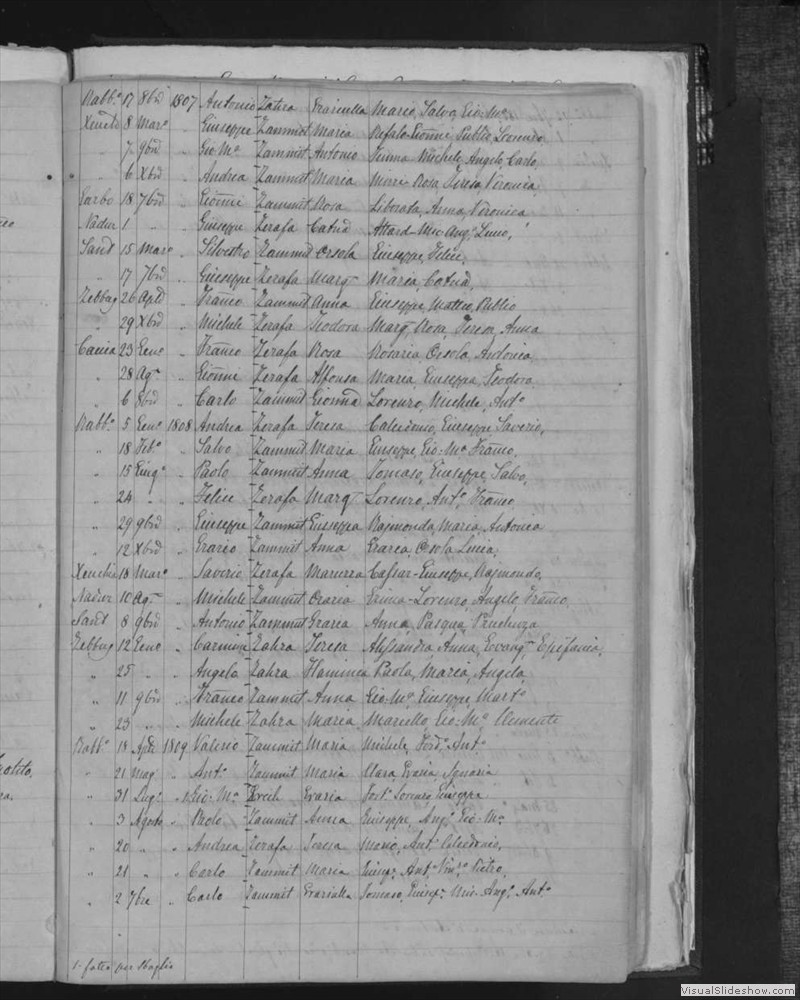 Rabb.º 17 8bre 1807 Antonio Zahra Graziulla Mario, Salvo, Gio: Mª
Xeuch 8 Marº " Giuseppe Zammit Maria Refalo Gionni, Publio, Lorenzo
" 7 9bre " Gio: Mª Zammit Antonia Michele, Angelo, Carlo,
" 6 Xbre " Andrea Zammit Maria Rosa, Teresa, Veronica
Garbo 18 7bre " Gionni Zammit Rosa Liborata, Anna, Veronica
Nadur 1 " " Giuseppe Zerafa Catna Attard - Mic: Angº
Sand 15 Marº " Silvestro Zammit Orsola Giuseppe, Felice,
" 17 7bre " Giuseppe Zerafa Marg Maria, Catna,
Zebbug 26 Aple " Franco Zammit Anna Giuseppe, Matteo, Publio
" 29 Xbre " Michele Zerafa Teodora Marg Rosa, Teresa, Anna
Caccia 23 Genº " Franco Zerafa Rosa Rosaria, Orsola, Antonia,
" 28 Agº " Gionni Zerafa Alfonsa Maria, Giuseppa, Teodora
" 6 8bre " Carlo Zammit Gionna Lorenzo, Michele, Antº
Rabbº 5 Genº 1808 Andrea Zerafa Teresa Calcedonio, Giuseppe, Saverio,
" 18 Febº " Salvo Zammit Maria Giuseppe, Gio: Mª Franco,
" 15 Giugº " Paolo Zammit Anna Tomaso, Giuseppe, Salvo,
" 24 " " Felice Zerafa Marg Lorenzo, Antº, Franco
" 29 9bre " Giuseppe Zammit Giuseppa Rajmonda, Maria, Antonia
" 12 Xbre " Grazio Zammit Anna Grazia, Orsola, Lucia,
Xeuchia 18 Marº " Saverio Zerafa Caesar - Giuseppe, Rajmondo,
Nadur 10 Agº " Michele Zammit Grazia Grima - Lorenzo, Angelo, Franco
Sand 8 9bre " Antonio Zammit Grazia Anna, Pasqua, Prudenza
Zebbug 12 Genº " Carmine Zahra Teresa Alessandra, Anna, Evangª Epifania,
" 25 " " Angelo Zahra Flaminea Paola, Maria, Angela,
" 11 9bre " Franco Zammit Anna Gio: Mª, Giuseppe, Martº
" 23 " " Michele Zahra Maria Marcello, Gio: Mª Clemente
Rabbº 18 Aple 1809 Valerio Zammit Maria Michele, Ferdº, Antº
" 21 Mag " Antº Zammit Maria Clara, Grazia, Ignazia
" 31 Lugº " Gio: Mª Grazia Fortº Lorenzo, Giuseppe
" 3 Agosto " Paolo Zammit Anna Giuseppe, Angº, Gio: Mª
" 20 " " Andrea Zerafa Teresa Mario, Antº Calcedonio,
" 21 " " Carlo Zammit Maria Giusepº, Antº, Vincº, Pietro,
" 2 7bre " Carlo Zammit Graziulla Tomaso, Giusepº, Mic: Angº, Antº
1- fatto per sbaglio
VisualSlideshow.com